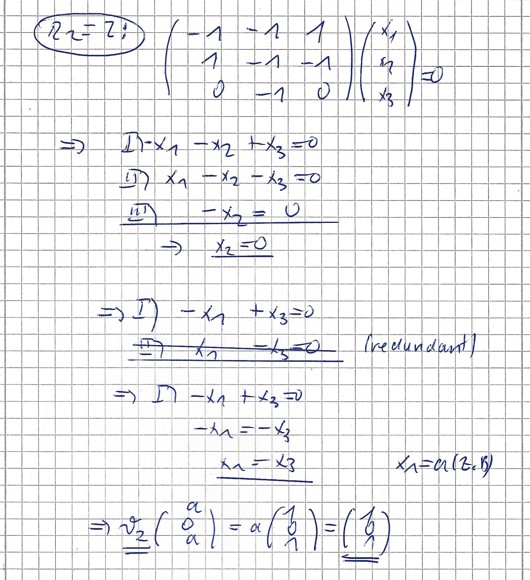 λ₂=2: ( -1 -1 1 ) ( x₁ )
( 1 -1 -1 ) ( x₂ ) =0
( 0 -1 0 ) ( x₃ )
=> I) -x₁ -x₂ +x₃=0
II) x₁ -x₂ -x₃=0
III) -x₂ = 0
=> x₂=0
=> I) -x₁ +x₃=0
II) x₁ -x₃=0 (redundant)
=> I) -x₁ +x₃=0
-x₁ = -x₃
x₁ = x₃ x₁=a (z.B)
=> v₂ (a 0 a) = a (1 0 1) = (1 0 1)